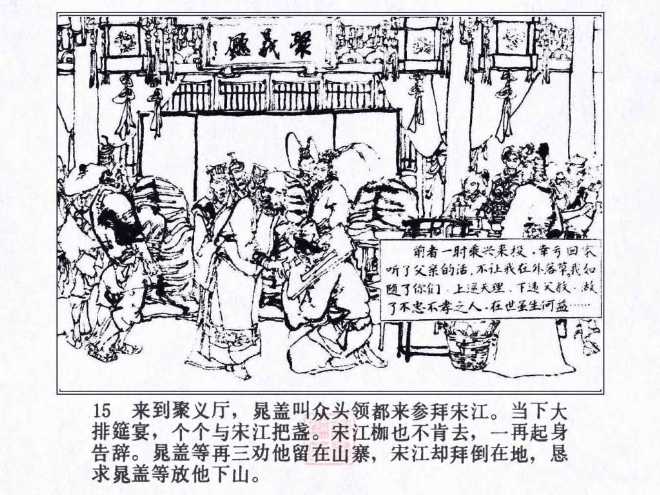 聚義廳
前者一时乘兴来投，幸亏回家
听了父亲的话，不让我在外落草。我如
随了你们，上逆天理、下违父教，做
了不忠不孝之人，在世虽生何益……
15 来到聚义厅，晁盖叫众头领都来参拜宋江。当下大
排筵宴，个个与宋江把盏。宋江枷也不肯去，一再起身
告辞。晁盖等再三劝他留在山寨，宋江却拜倒在地，恳
求晁盖等放他下山。